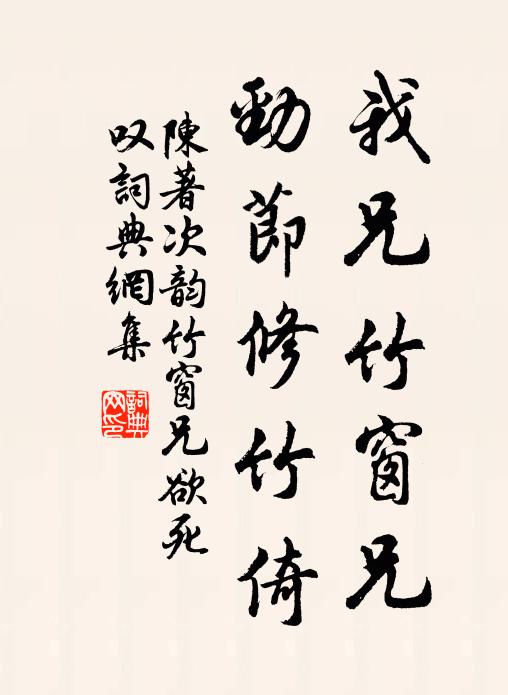 我兄竹窗兄
勁節修竹倚
陳著次韵竹窗兄欲死
叹詞典網集
詞典网印